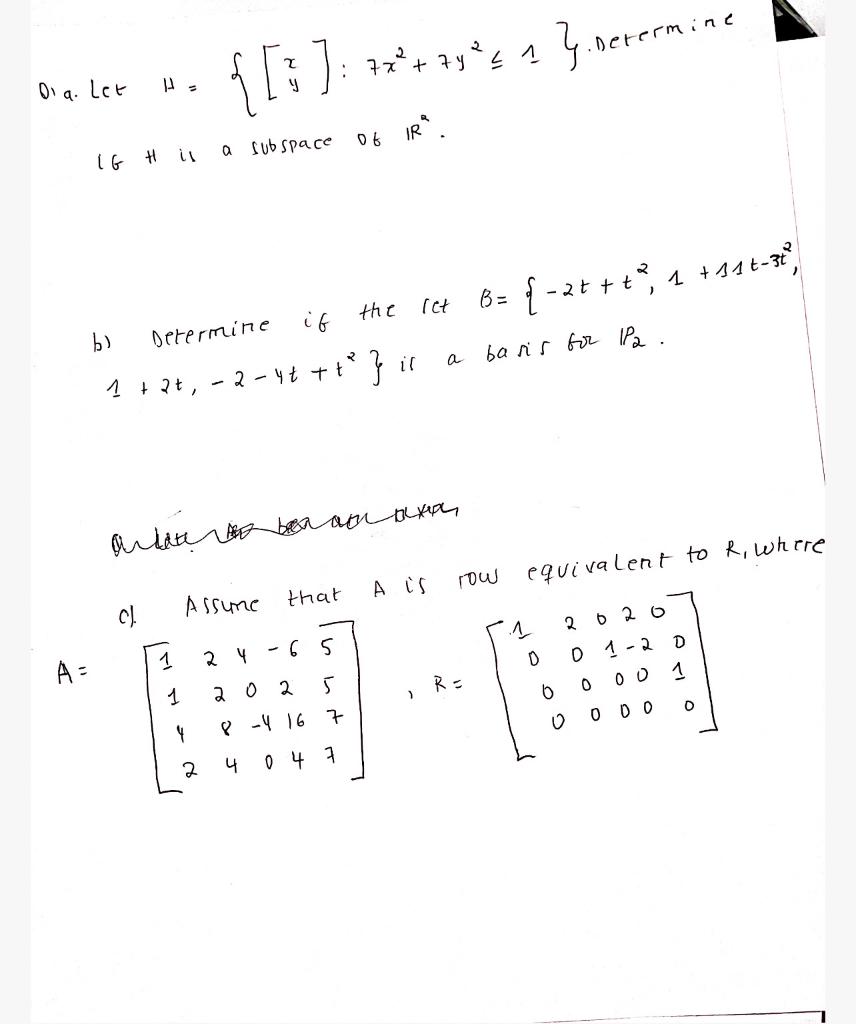 Q1 a. Let H = { [x y] : 7x² + 7y² ≤ 1 }. Determine
if H is a subspace of ℝ².
b) Determine if the set B = { -2t + t², 1 + 11t - 3t²,
1 + 2t, -2 - 4t + t² } is a basis for ℙ₂.
c). Assume that A is row equivalent to R, where
A = [ 1 2 4 -6 5
1 2 0 2 5
4 8 -4 16 7
2 4 0 4 7 ]
, R = [ 1 2 0 2 0
0 0 1 -2 0
0 0 0 0 1
0 0 0 0 0 ]